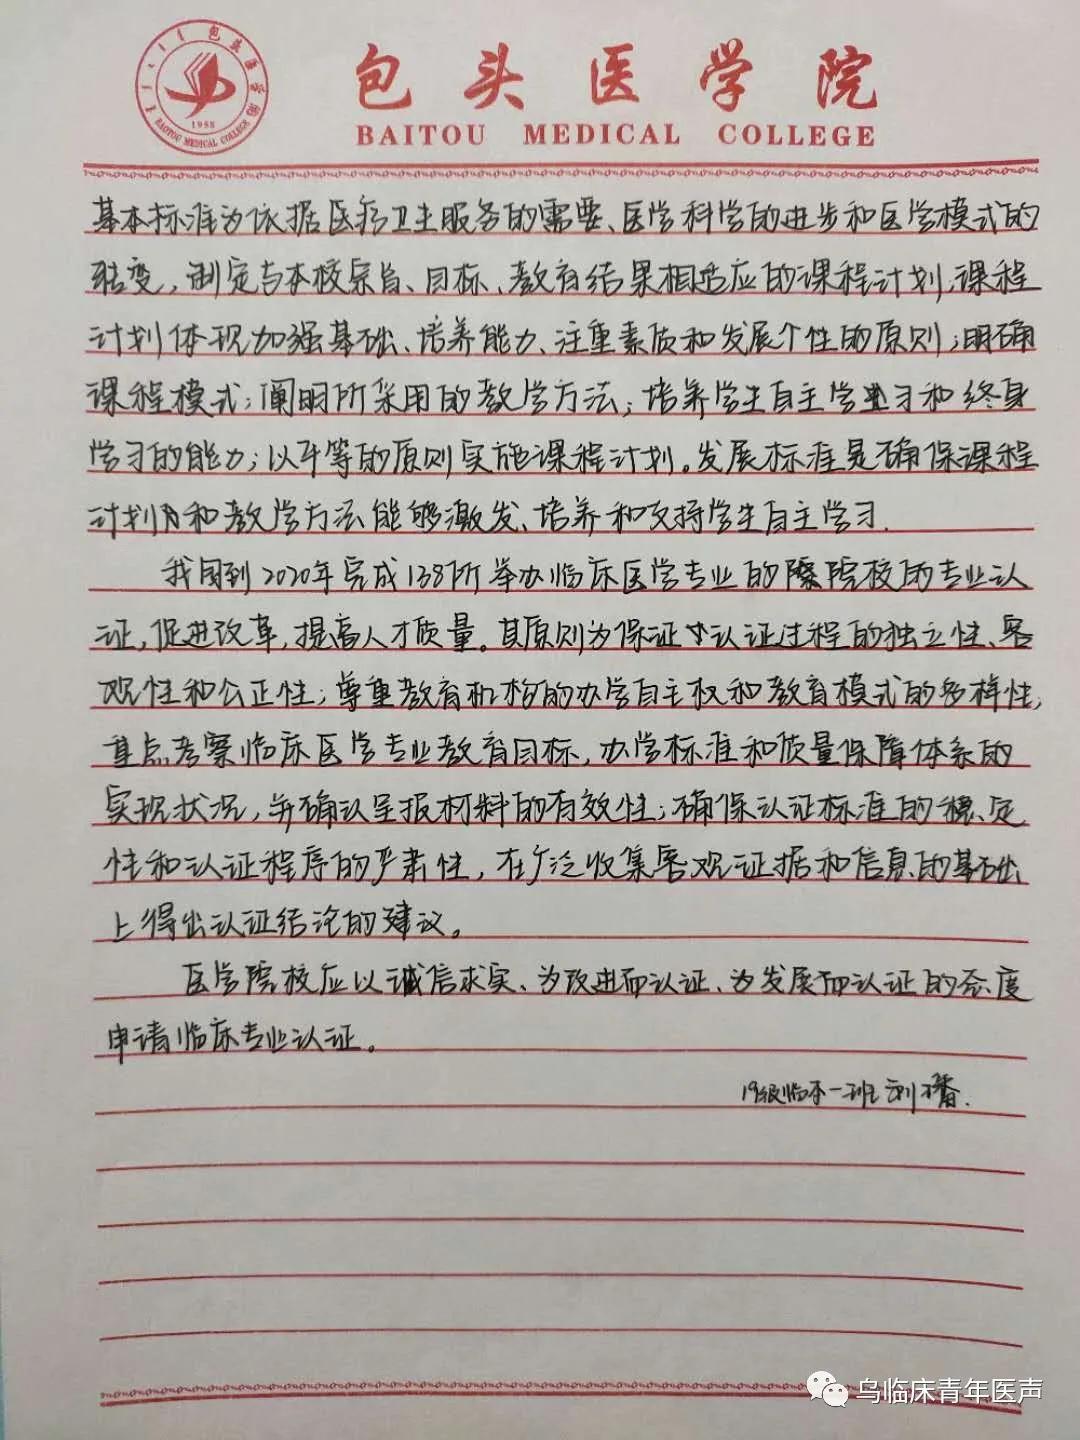 包头医学院
BAOTOU MEDICAL COLLEGE
1958
包头医学院
BAITOU MEDICAL COLLEGE
基本标准为依据医疗卫生服务的需要、医学科学的进步和医学模式的
转变，制定与本校宗旨、目标、教育结果相适应的课程计划；课程
计划体现加强基础、培养能力、注重素质和发展个性的原则；明确
课程模式；阐明所采用的教学方法；培养学生自主学习和终身
学习的能力；以平等的原则实施课程计划。发展标准是确保课程
计划和教学方法能够激发、培养和支持学生自主学习.
我国到2020年完成138所举办临床医学专业的院校的专业认
证，促进改革，提高人才质量。其原则为保证认证过程的独立性、客
观性和公正性；尊重教育机构的办学自主权和教育模式的多样性；
重点考察临床医学专业教育目标，办学标准和质量保障体系的
实现状况，并确认呈报材料的有效性；确保认证标准的稳定
性和认证程序的严肃性，在广泛收集客观证据和信息的基础
上得出认证结论的建议。
医学院校应以诚信求实、为改进而认证、为发展而认证的态度
申请临床专业认证。
19级临本一班 刘
乌临床青年医声